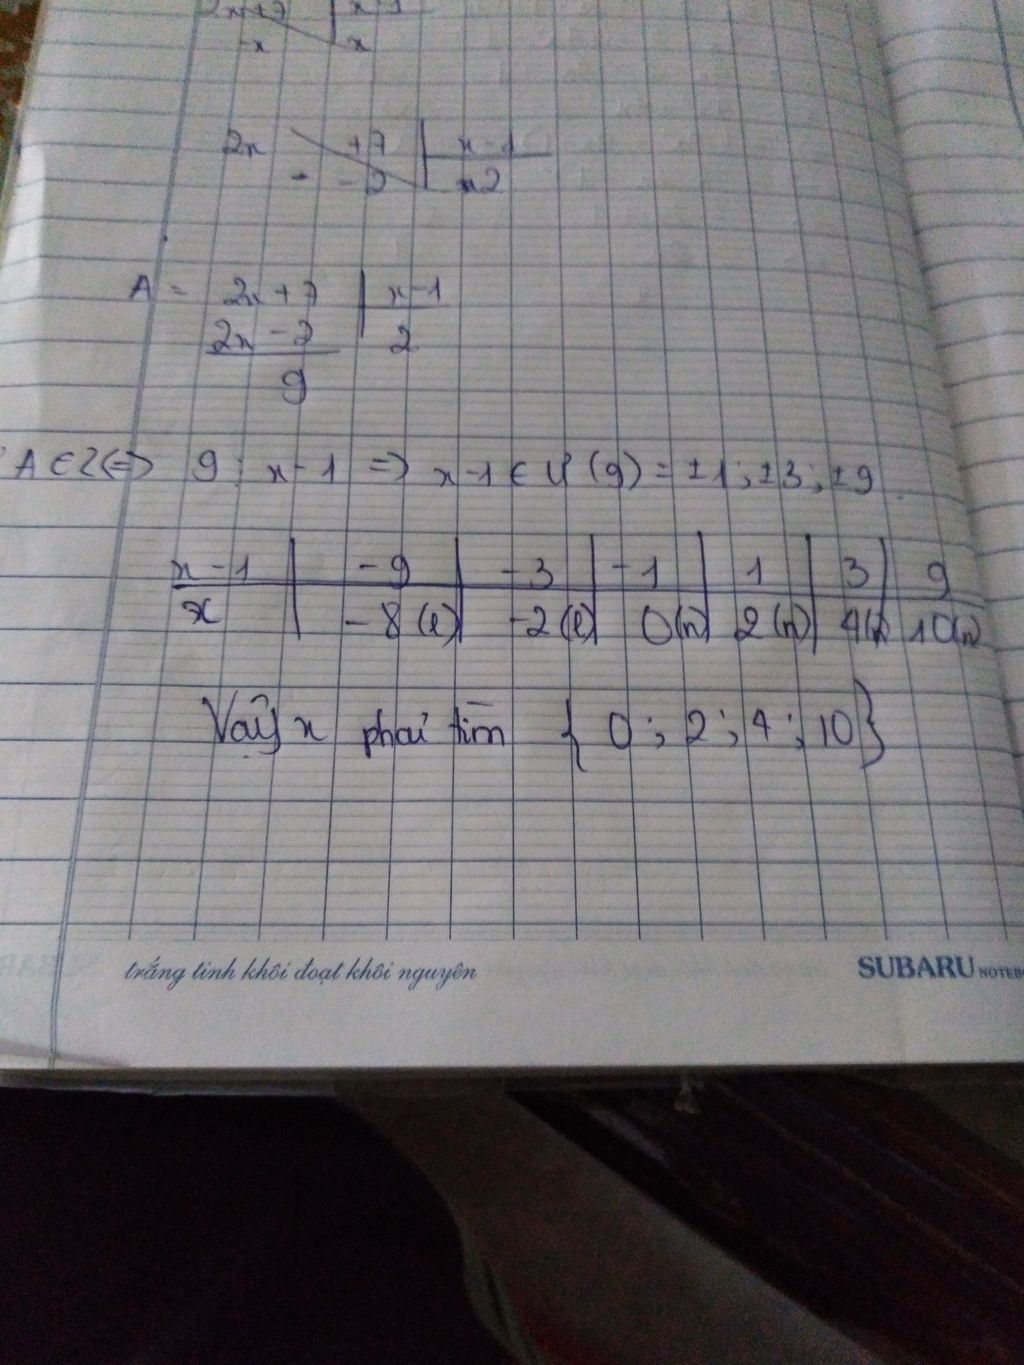 2x+7 | x-1
-x | x
2x +7 | x-1
- -2 | x2
A = 2x+7 | x-1
2x-2 | 2
9
A ∈ Z (=> 9 ⋮ x-1 => x-1 ∈ Ư (9) = ±1; ±3; ±9
x-1 | -9 | -3 | -1 | 1 | 3 | 9
x | -8(l) | -2(l) | 0(n) | 2(n) | 4(n) | 10(n)
Vậy x phải tìm { 0; 2; 4; 10}
trắng tinh khôi đoạt khôi nguyên
SUBARU